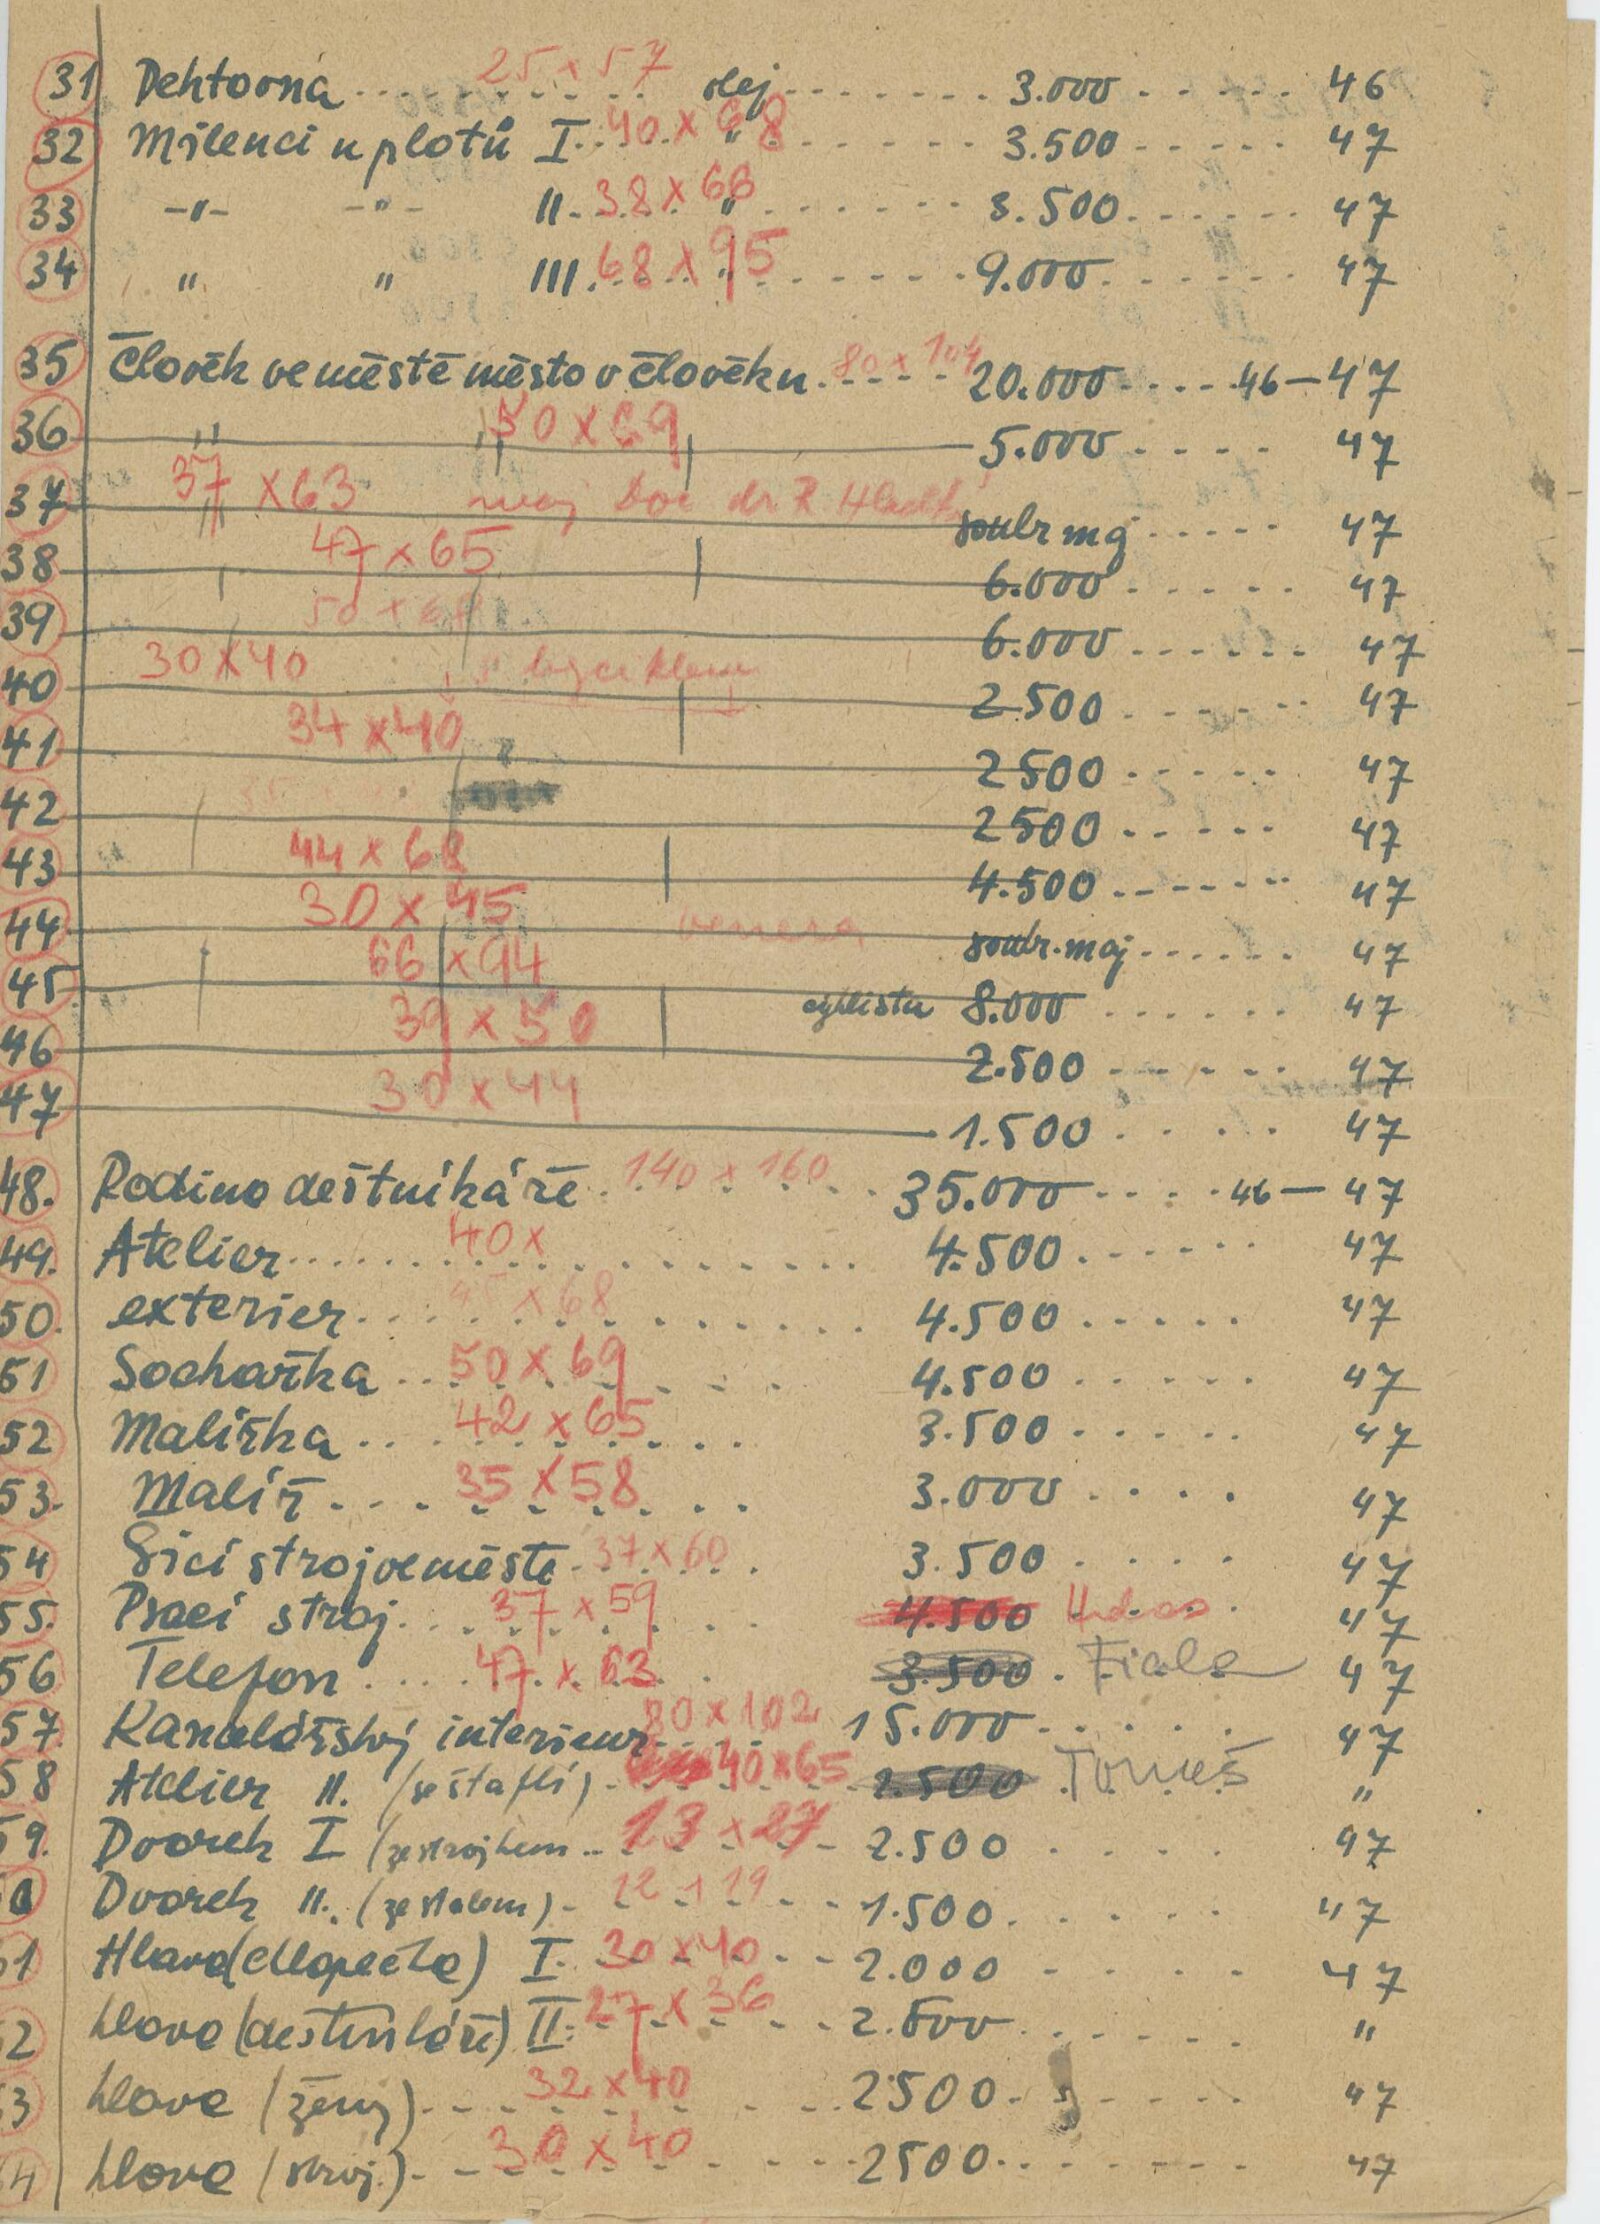 31 Dehtovna 25 x 57 olej 3.000 46
32 Milenci u plotů I. 40 x 68 " 3.500 47
33 -"- -"- II. 38 x 66 " 3.500 47
34 " " III. 68 x 95 " 9.000 47
35 Člověk ve městě město v člověku 80 x 104 20.000 46—47
36 " " 50 x 69 5.000 47
37 " 37 x 63 maj Doc dr soukr maj 47
38 47 x 65 6.000 47
39 50 x 6.000 47
40 30 x 40 s byciklem 2.500 47
41 34 x 40 2500 47
42 2500 47
43 44 x 68 4.500 47
44 30 x 45 venera soukr. maj 47
45 66 x 94 cyklista 8.000 47
46 39 x 50 2.500 47
47 30 x 44 1.500 47
48. Rodina deštnikáře 140 x 160 35.000 46—47
49. Atelier 40 x 4.500 47
50. exterier 45 x 68 4.500 47
51 Sochařka 50 x 69 4.500 47
52 Malířka 42 x 65 3.500 47
53. Malíř 35 x 58 3.000 47
54 Šicí stroj ve městě 37 x 60 3.500 47
55. Psací stroj 37 x 59 4.500 47
56 Telefon 47 x 63 3.500 Fiala 47
57. interieur 80 x 102 15.000 47
58 Atelier II. (se štaflí) 40 x 65 2.500 Tomeš "
59. Dvorek I (ze strojkem 23 x 27 2.500 47
60 Dvorek II. (ze stolem) 22 x 29 1.500 47
61 Hlava (chlapečka) I. 30 x 40 2.000 47
62 hlava (deštnikáře) II. 27 x 36 2.500 "
63 hlava (ženy) 32 x 40 2500 47
64 hlava (stroj.) 30 x 40 2500 47